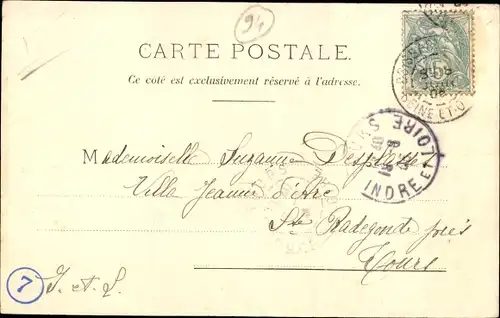 94
CARTE POSTALE.
Ce côté est exclusivement réservé à l'adresse.
5
SEINE-ET-O
INDRE ET LOIRE
Mademoiselle Suzanne
Villa Jeanne d'Arc
Ste Radegonde près
Tours
I. et L.
7